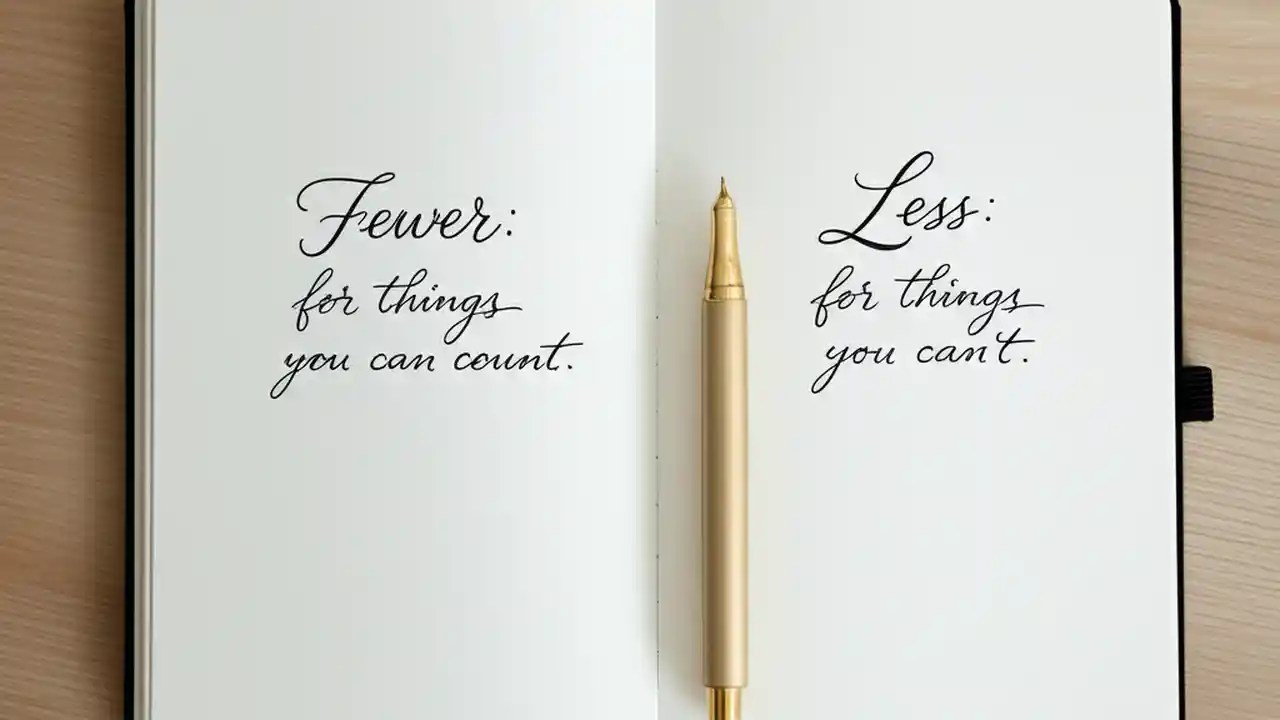 Fewer:
for things
you can count.
Less:
for things
you can't.